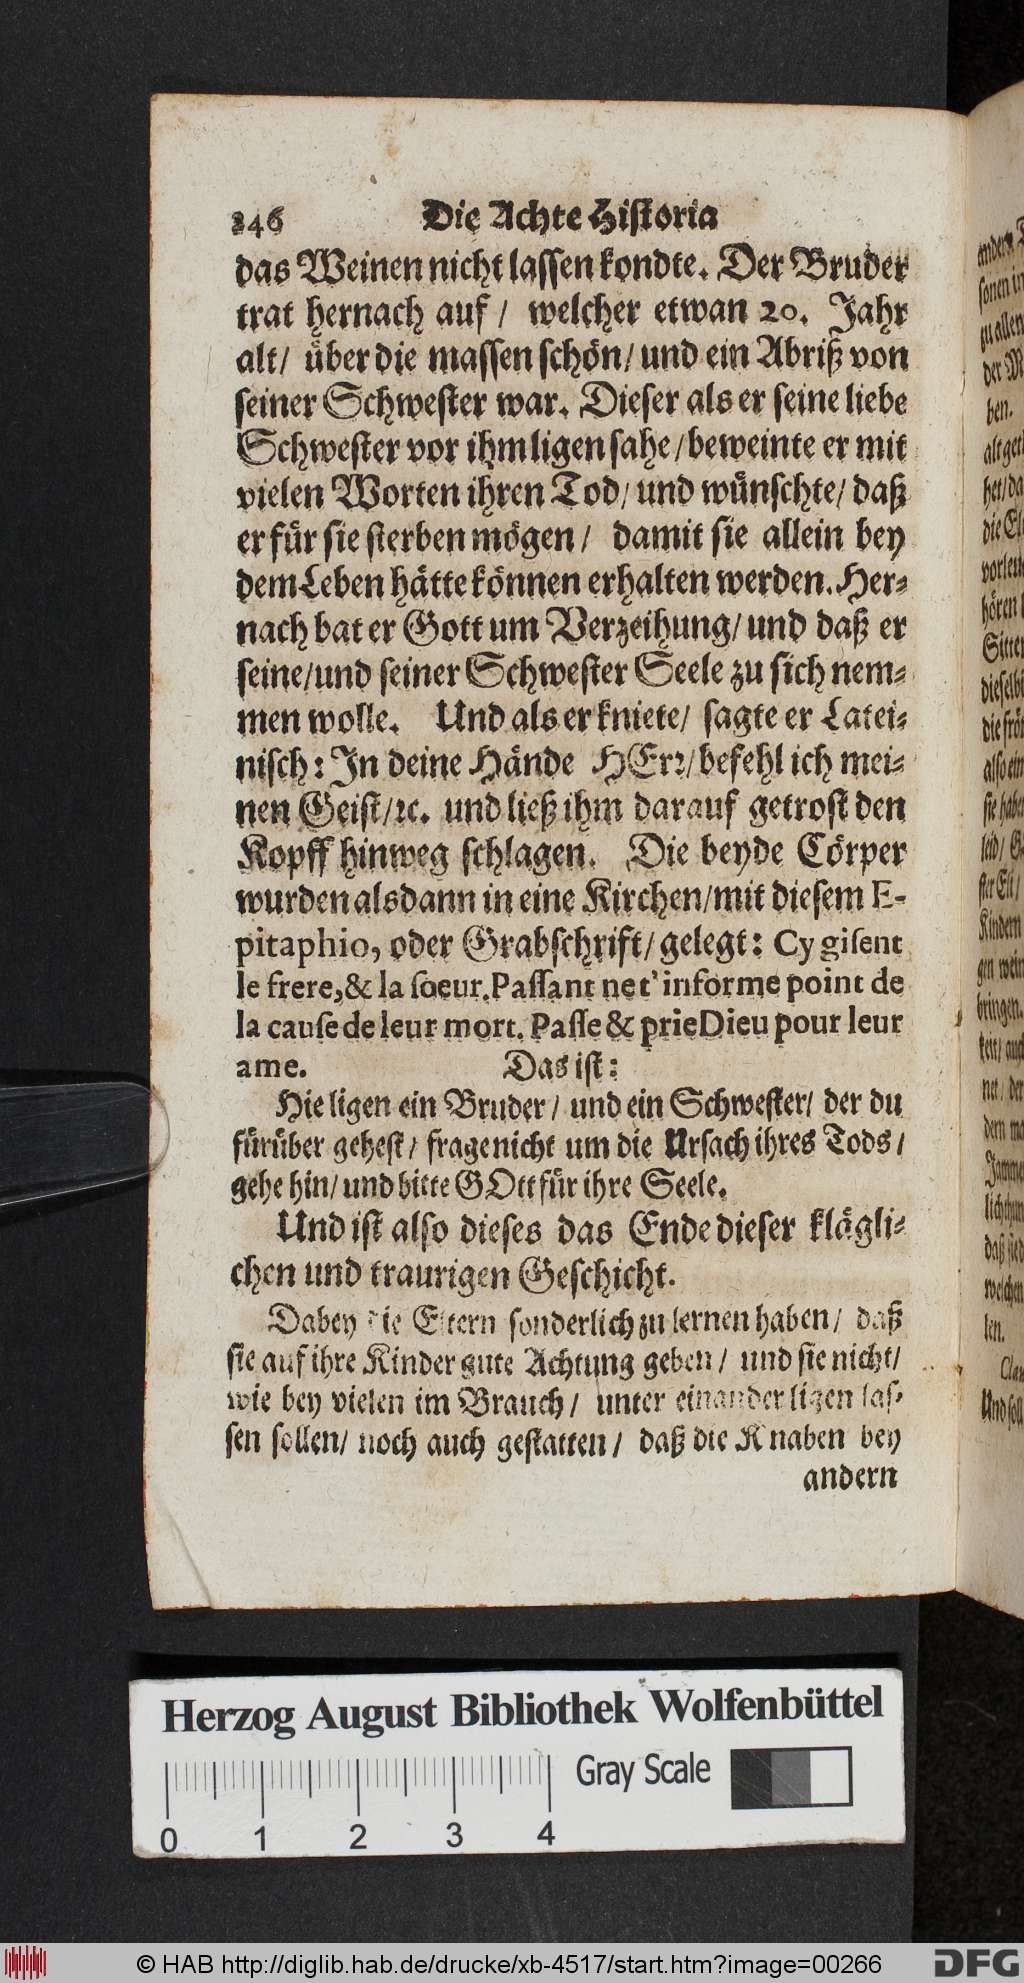 246 Die Achte Historia
das Weinen nicht lassen kondte. Der Bruder
trat hernach auf / welcher etwan 20. Jahr
alt / über die massen schön / und ein Abriß von
seiner Schwester war. Dieser als er seine liebe
Schwester vor ihm ligen sahe / beweinte er mit
vielen Worten ihren Tod / und wünschte / daß
er für sie sterben mögen / damit sie allein bey
dem Leben hätte können erhalten werden. Her-
nach bat er Gott um Verzeihung / und daß er
seine / und seiner Schwester Seele zu sich nem-
men wolle. Und als er kniete / sagte er Latei-
nisch: In deine Hände HErr / befehl ich mei-
nen Geist / ꝛc. und ließ ihm darauf getrost den
Kopff hinweg schlagen. Die beyde Cörper
wurden alsdann in eine Kirchen / mit diesem E-
pitaphio, oder Grabschrift / gelegt: Cy gisent
le frere, & la soeur. Passant ne t'informe point de
la cause de leur mort. Passe & prie Dieu pour leur
ame. Das ist:
Hie ligen ein Bruder / und ein Schwester / der du
fürüber gehest / frage nicht um die Ursach ihres Tods /
gehe hin / und bitte GOtt für ihre Seele.
Und ist also dieses das Ende dieser klägli-
chen und traurigen Geschicht.
Dabey die Eltern sonderlich zu lernen haben / daß
sie auf ihre Kinder gute Achtung geben / und sie nicht /
wie bey vielen im Brauch / unter einander ligen las-
sen sollen / noch auch gestatten / daß die Knaben bey
andern
Herzog August Bibliothek Wolfenbüttel
Gray Scale
0 1 2 3 4
© HAB http://diglib.hab.de/drucke/xb-4517/start.htm?image=00266
DFG